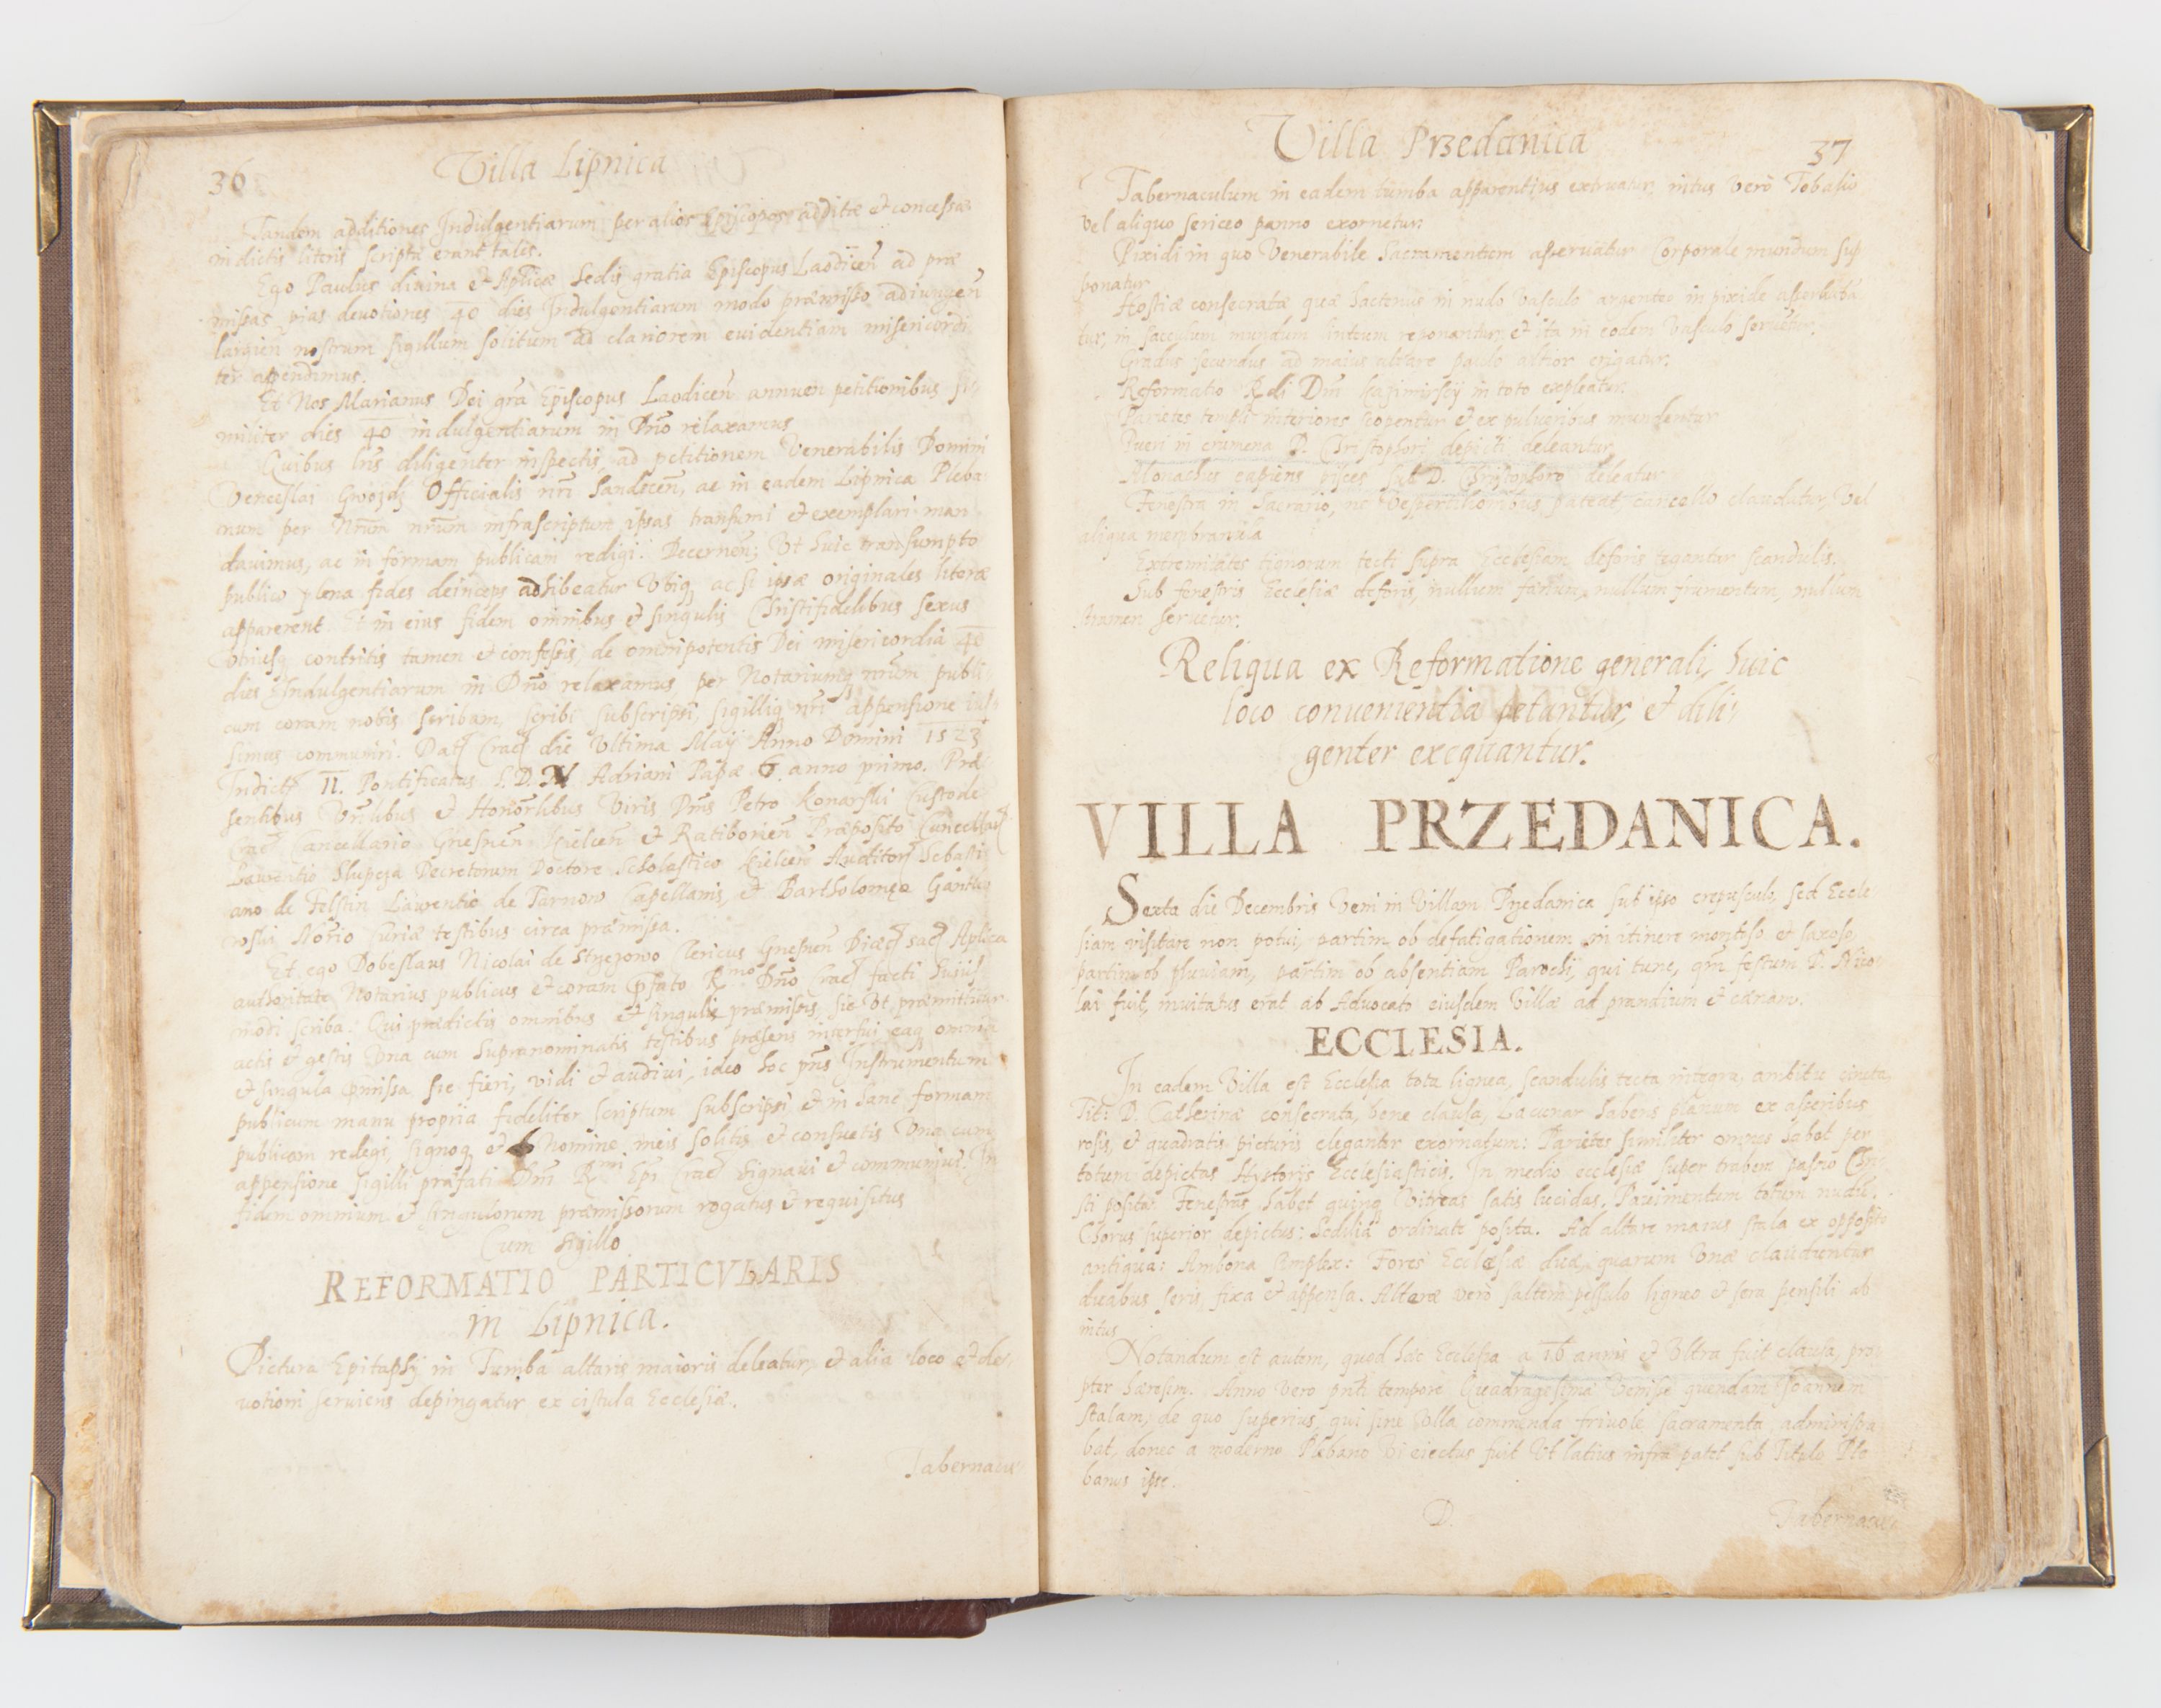 36 Villa Lipnica
Tandem additiones Indulgentiarum per alios Episcopos additæ et concessæ
in dictis literis scripta erant talis.
Ego Paulus diuina et Aplicæ Sedis gratia Episcopus Laodiceñ ad præ
missas pias deuotiones 40 dies Indulgentiarum modo præmisso adiungeñ
largień nostrum sigillum solitum ad clariorem euidentiam misericordi
ter appendimus.
Et Nos Marianus Dei gra Episcopus Laodiceñ annueñ petitionibus si
militer dies 40 indulgentiarum in Dno relaxamus
Quibus lris diligenter inspectis, ad petitionem Venerabilis Domini
Venceslai Gwozdz Officialis nri Sandeceñ, ac in eadem Lipnica Pleba
num per Nrum nrum infrascriptum ipsas transumi et exemplari man
dauimus, ac in formam publicam redigi. Decerneñ; Vt huic transumpto
publico plena fides deinceps adhibeatur Vbiq, ac si ipsæ originales literæ
apparerent. Et in eius fidem omnibus et singulis Christifidelibus sexus
vtriusq contritis tamen et confessis, de omnipotentis Dei misericordia 40
dies Indulgentiarum in Dno relaxamus, per Notariumq nrum publi
cum coram nobis scribam, scribi subscripsi, sigilliq nri appensione ius
simus communiri. Dat Crac die Vltima Maij Anno Domini 1523
Indict II. Pontificatus S. D. N. Adriani Papæ 6 anno primo. Præ
sentibus Vrlibus et Honorlibus Viris Dnis Petro Konarski Custode
Crac Cancellario Gnesneñ Kielceñ et Ratiborieñ Præposito Cancellar
Laurentio Slupcza Decretorum Doctore Scholastico Kielceñ Auditor Sebasti
ano de Felstin Laurentio de Tarnow Capellanis, et Bartholomeo Gantko
wski Norio Curiæ testibus circa præmissa.
Et ego Dobeslaus Nicolai de Strzezowo Clericus Gnesneñ Diæc sac Aplica
authoritate Notarius publicus et coram Pfato Rmo Dno Crac facti huius
modi scriba: Qui prædictis omnibus et singulis præmissis, sic Vt præmittitur
actis et gestis Vna cum supranominatis testibus præsens interfui, eaq omnia
et singula pmissa sic fieri, vidi et audiui, ideo hoc pns Instrumentum
publicum manu propria fideliter scriptum subscripsi et in hanc formam
publicam redegi, signoq et Nomine meis solitis et consuetis Vna cum
appensione sigilli præfati Dni Rmi Epi Crac signaui et communiui. In
fidem omnium et singulorum præmissorum rogatus et requisitus
Cum sigillo
REFORMATIO PARTICVLARIS
in Lipnica.
Pictura Epitaphij in Tumba altaris maioris deleatur, et alia loco et de
uotioni seruiens depingatur ex cistula Ecclesiæ.
Tabernacu
Villa Przedanica 37
Tabernaculum in eadem tumba apparentius extruatur, intus Verò Tobalio
Vel aliquo sericeo panno exornetur.
Pixidi in quo Venerabile Sacramentum asseruatur Corporale mundum sup
ponatur
Hostiæ consecratæ quæ hactenus in nudo Vasculo argenteo in pixide asseruaba
tur, in sacculum mundum linteum reponantur, et ita in eodem Vasculo seruetur.
Gradus secundus ad maius altare paulo altior erigatur.
Reformatio Rdi Dni Kazimirsky in toto expleatur.
Parietes templi interiores scopentur et ex pulueribus mundentur
Pueri in crumena D. Christophori depicti deleantur,
Monachus capiens pisces sub D. Christophoro deleatur
Fenestra in Sacrario, ne Vespertilionibus pateat, cancello claudatur, Vel
aliqua membranula
Extremitates tignorum tecti supra Ecclesiam deforis tegantur scandulis.
Sub fenestris Ecclesiæ deforis, nullum fænum, nullum frumentum, nullum
stramen seruetur.
Reliqua ex Reformatione generali, huic
loco conuenientia petantur, et dili
genter exequantur.
VILLA PRZEDANICA.
Sexta die Decembris Veni in Villam Przedanica sub ipso crepusculo, sed Eccle
siam visitare non potui, partim ob defatigationem in itinere montoso et saxoso,
partim ob pluuiam, partim ob absentiam Parochi, qui tunc, qm festum D. Nico
lai fuit, inuitatus erat ab Aduocato eiusdem Villæ ad prandium et cænam.
ECCLESIA.
In eadem Villa est Ecclesia tota lignea, scandulis tecta integra, ambitu cincta,
Tit: D. Catherinæ consecrata, bene clausa, Lacunar habens planum ex asseribus
rosis, et quadratis picturis eleganter exornatum: Parietes similiter omnes habet per
totum depictas Hystoriis Ecclesiasticis. In medio ecclesiæ super trabem passio Chri
sti posita. Fenestras habet quinq Vitreas satis lucidas. Pauimentum totum nudum.
Chorus superior depictus: Sedilia ordinate posita. Ad altare maius stala ex opposito
antiqua: Ambona simplex: Fores Ecclesiæ duæ, quarum Vnæ clauduntur
duabus seris, fixa et appensa. Alteræ verò saltem pessulo ligneo et sera pensili ab
intus
Notandum est autem, quod hæc Ecclesia a 16 annis et Vltra fuit clausa, pro
pter hæresim. Anno vero pnti tempore Quadragesimæ Venisse quendam Joannem
Stalam, de quo superius, qui sine Vlla commenda friuole sacramenta administra
bat, donec a moderno Plebano Vi eiectus fuit Vt latius infra patet sub Titulo Ple
banus ipse.
D. Tabernacu